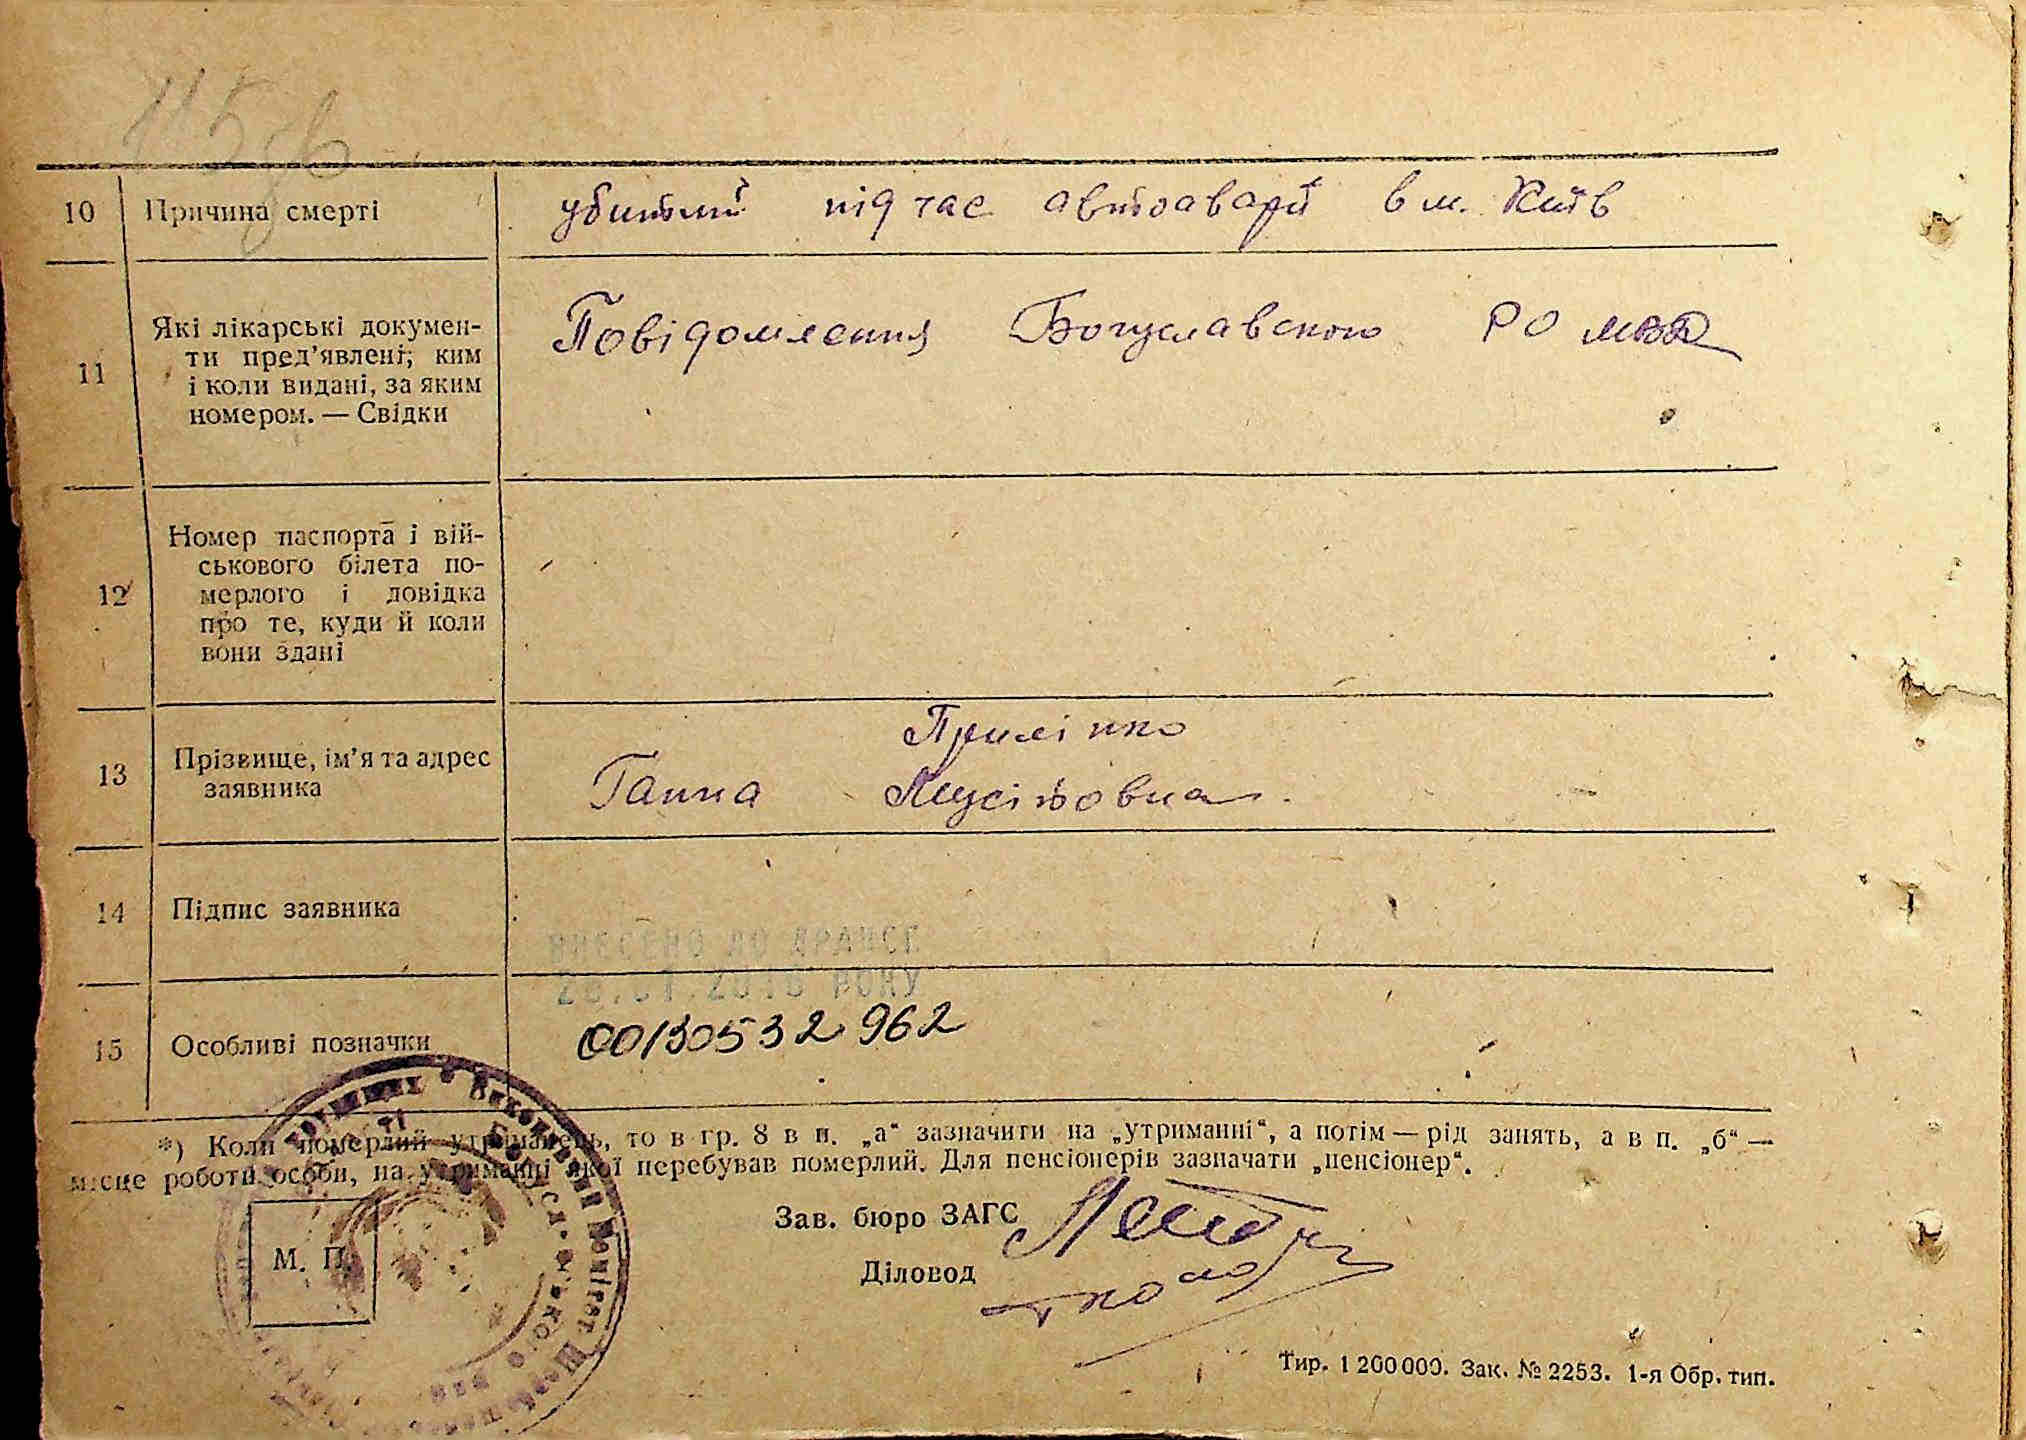 10 Причина смерті убитий під час автоаварії в м. Київ
11 Які лікарські докумен-
ти пред'явлені; ким
і коли видані, за яким
номером. — Свідки
Повідомлення Богуславського РО МВД
12 Номер паспорта і вій-
ськового білета по-
мерлого і довідка
про те, куди й коли
вони здані
13 Прізвище, ім'я та адрес
заявника
Ганна Мусіївовна
14 Підпис заявника
ВНЕСЕНО ДО ДРАЦСГ
РОКУ
15 Особливі позначки 00130532962
*) Коли померлий утриманець, то в гр. 8 в п. „а“ зазначити на „утриманні“, а потім — рід занять, а в п. „б“ —
місце роботи особи, на утриманні якої перебував померлий. Для пенсіонерів зазначати „пенсіонер“.
Зав. бюро ЗАГС
Діловод
М. П.
Виконавчий Комітет
Тир. 1 200 000. Зак. № 2253. 1-я Обр. тип.